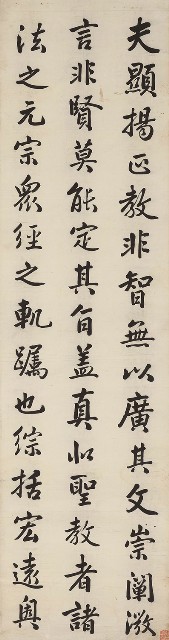 夫顯揚正教非智無以廣其文崇闡微
言非賢莫能定其旨蓋真如聖教者諸
法之元宗眾經之軌躅也綜括宏遠奧